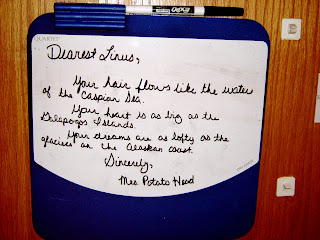 EXPO
QUARTET
Dearest Linus,
Your hair flows like the water
of the Caspian Sea.
Your heart is as big as the
Galapagos Islands.
Your dreams are as lofty as the
glaciers on the Alaskan coast.
Sincerely,
Mrs Potato Head